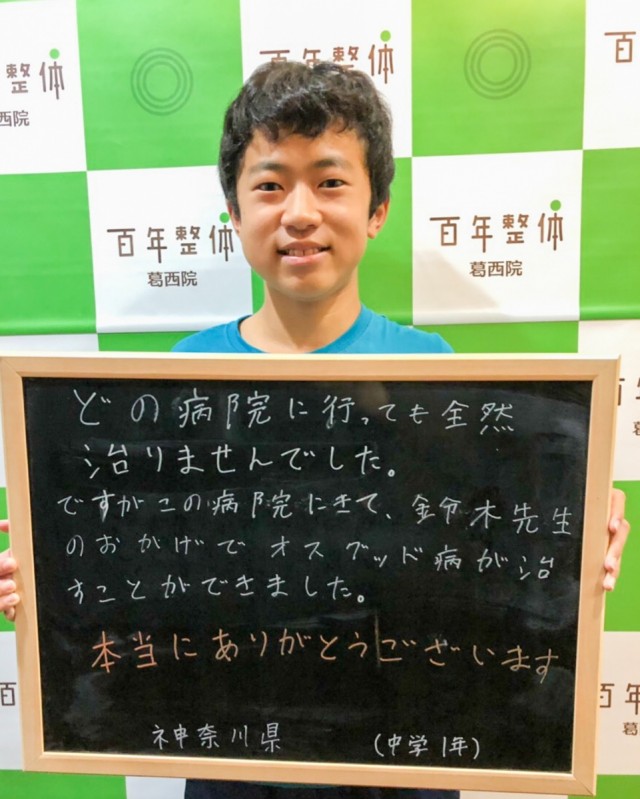 整体
西院
百年整体
百
百年整体
葛西院
百年整体
葛西院
どの病院に行っても全然
治りませんでした。
ですがこの病院にきて、鈴木先生
のおかげでオスグッド病が治
すことができました。
本当にありがとうございます
神奈川県 (中学1年)
百年
百
百年